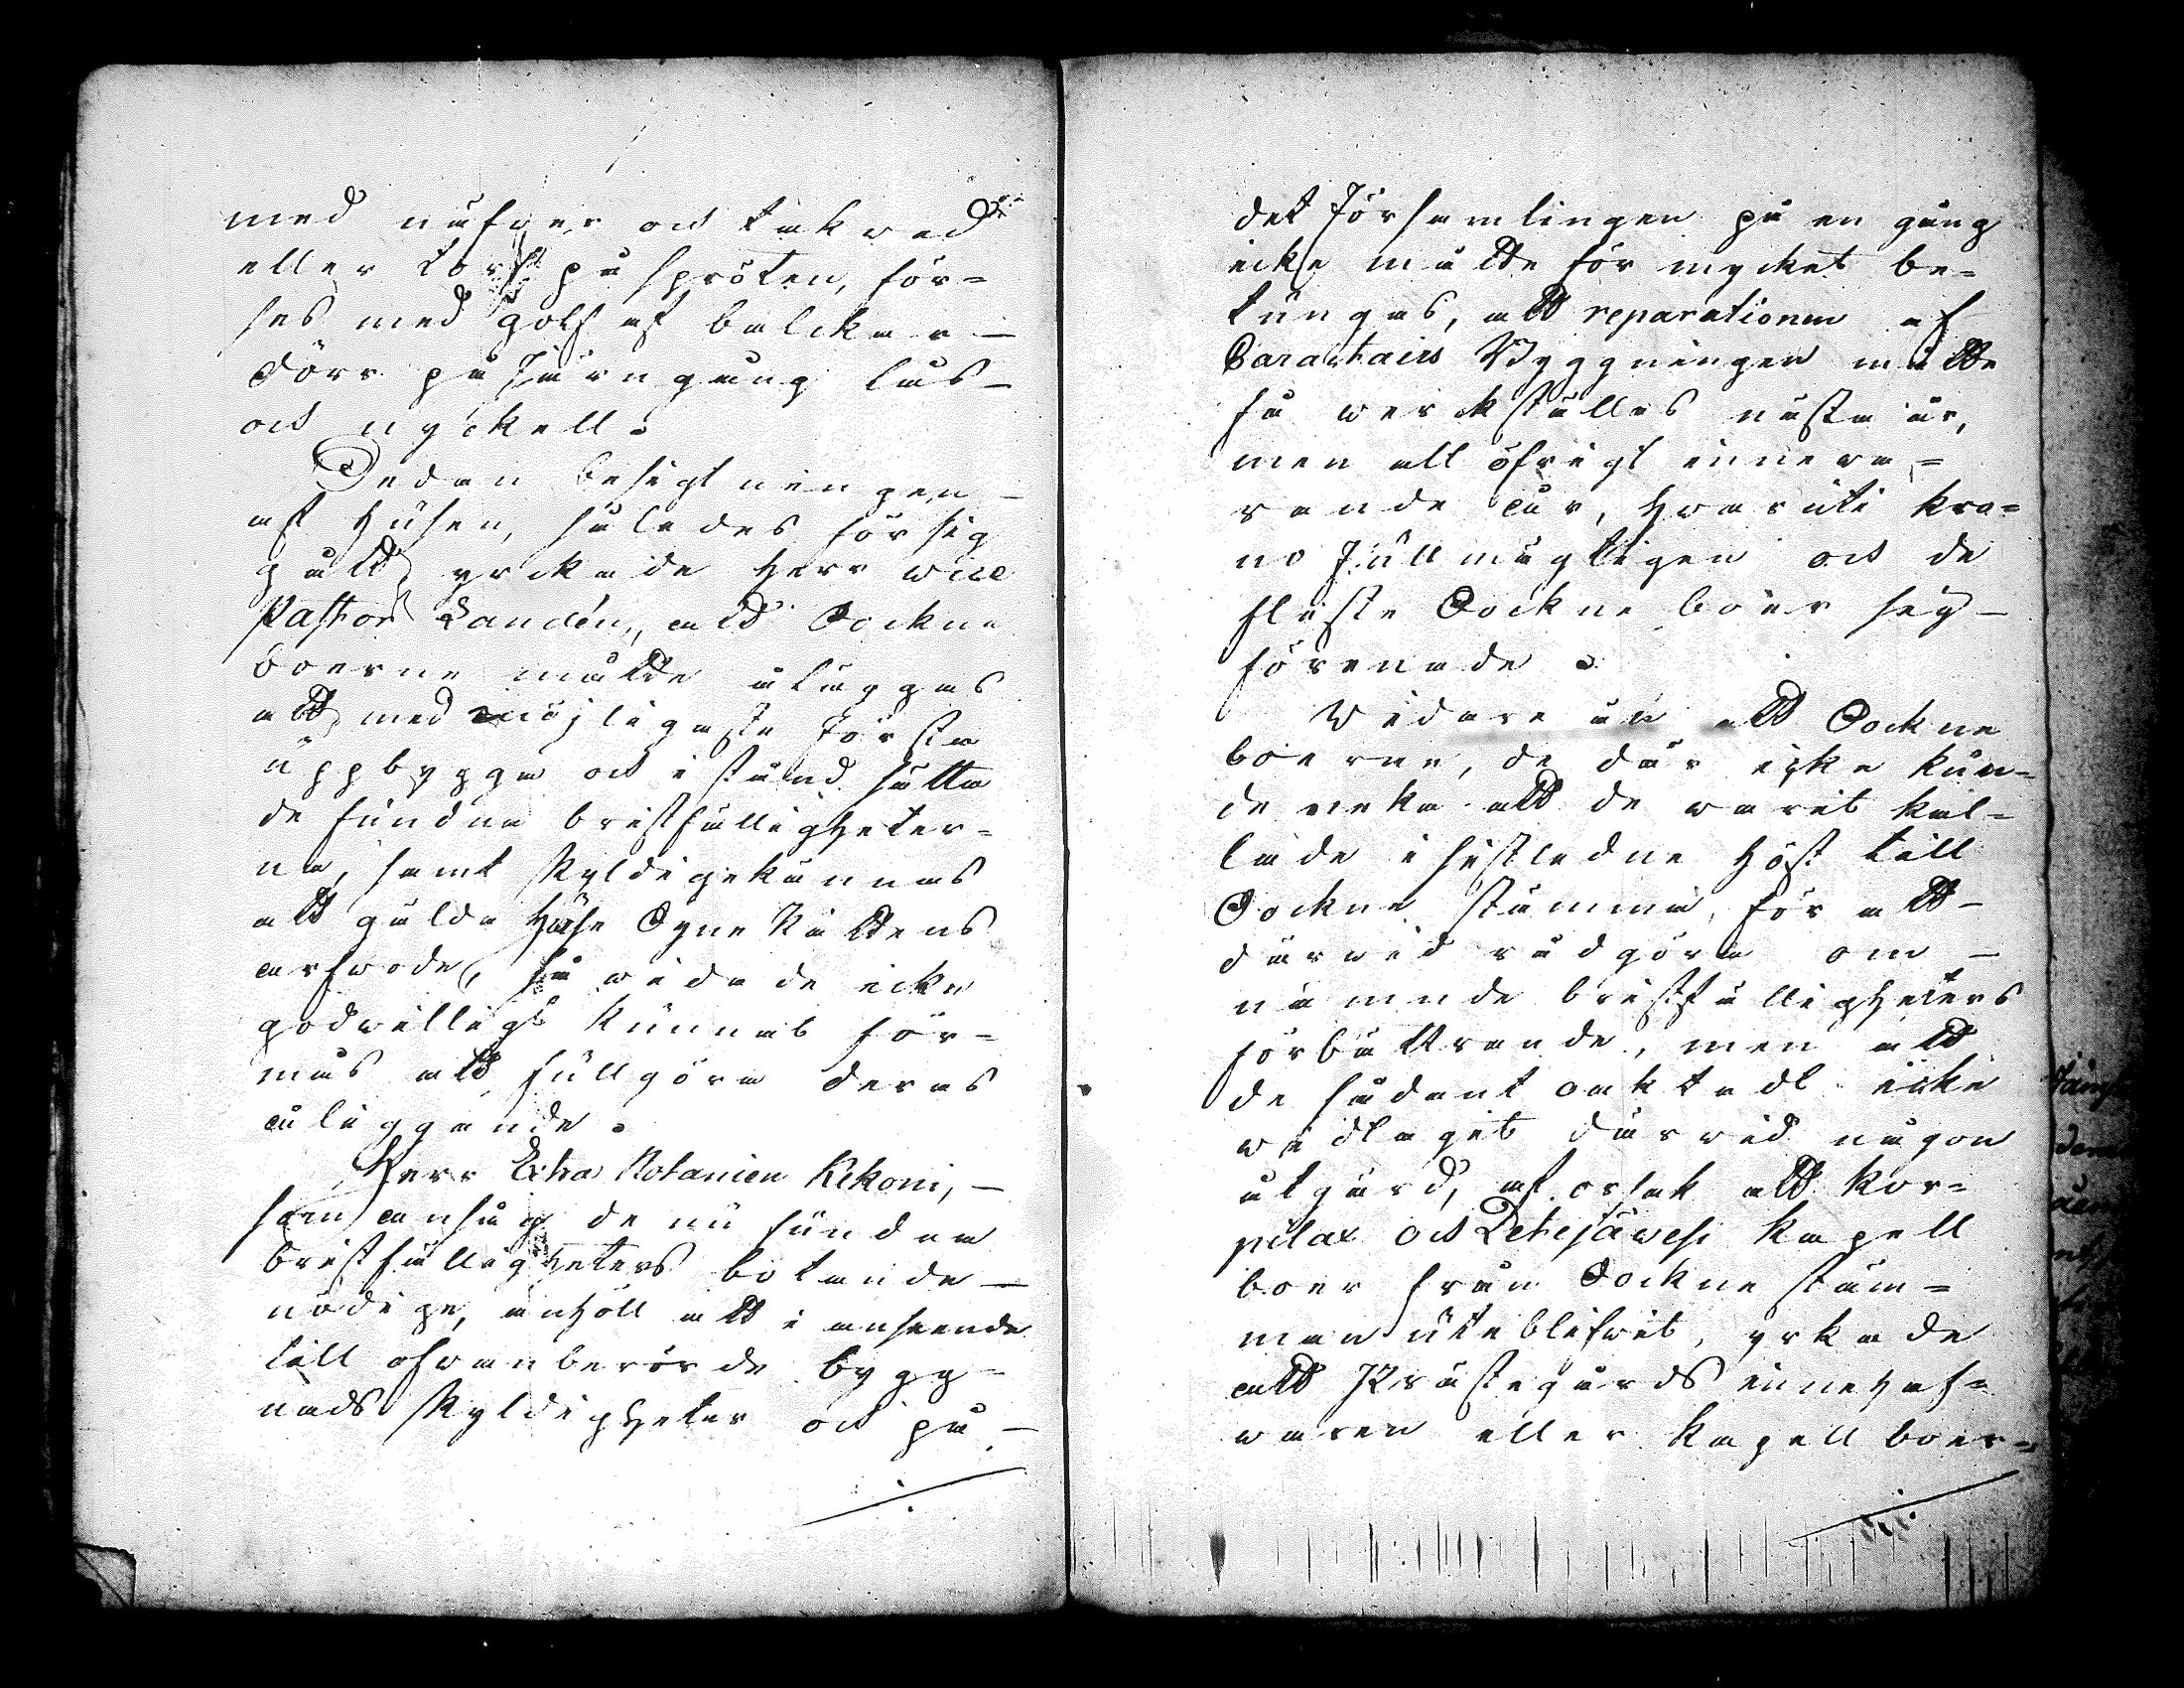 med näfver och takved
eller torf på spröten, för=
ses med golf af balckar —
Dörr på Järngång lås —
och nyckell.
Sedan besigtningen —
af Husen, således för sig
gådt, yrckade Herr vice
Pastor Landén, att Sockne
boerne måtte åläggas
att med möjligaste första
uppbygga och i stånd sätta
de fundna bristfälligheter=
na, samt skyldigekännas
att gulda Huse Syne Rättens
arfvode, så vida de icke
godvilligt kunnat för=
mås att fullgöra deras
åliggande.
Herr Extra Notarien Kekoni, —
som ansåg de nu fundna
bristfälligheters botande —
nödige, anhöll att i anseende
till ofvanberörde bygg=
nads skyldigheter och på —
det Församlingen på en gång
icke måtte för mycket be=
tungas, att reparationen af
Byggningen måtte
få verckställes nästa år,
men allt öfrigt inneva=
rande år, hvaruti kro=
no Fullmägtigen och de
fläste Sockne boer sig —
förenade.
Vidare än att Sockne
boerne, de där icke kun=
de neka att de varit kal=
lade i sistledne höst till
Sockne stämma, för att —
därvid rådgöra om —
nämnde bristfälligheters
förbättrande, men att
de sådant oaktadt icke
vidtagit därvid någon
utgärd, af orsak att Kor=
pilax och Lehesäwesi Kapell
boer från Sockne stäm=
man uteblifvit, yrkade
att Prästegårds innehaf=
varen eller Kapell boer=